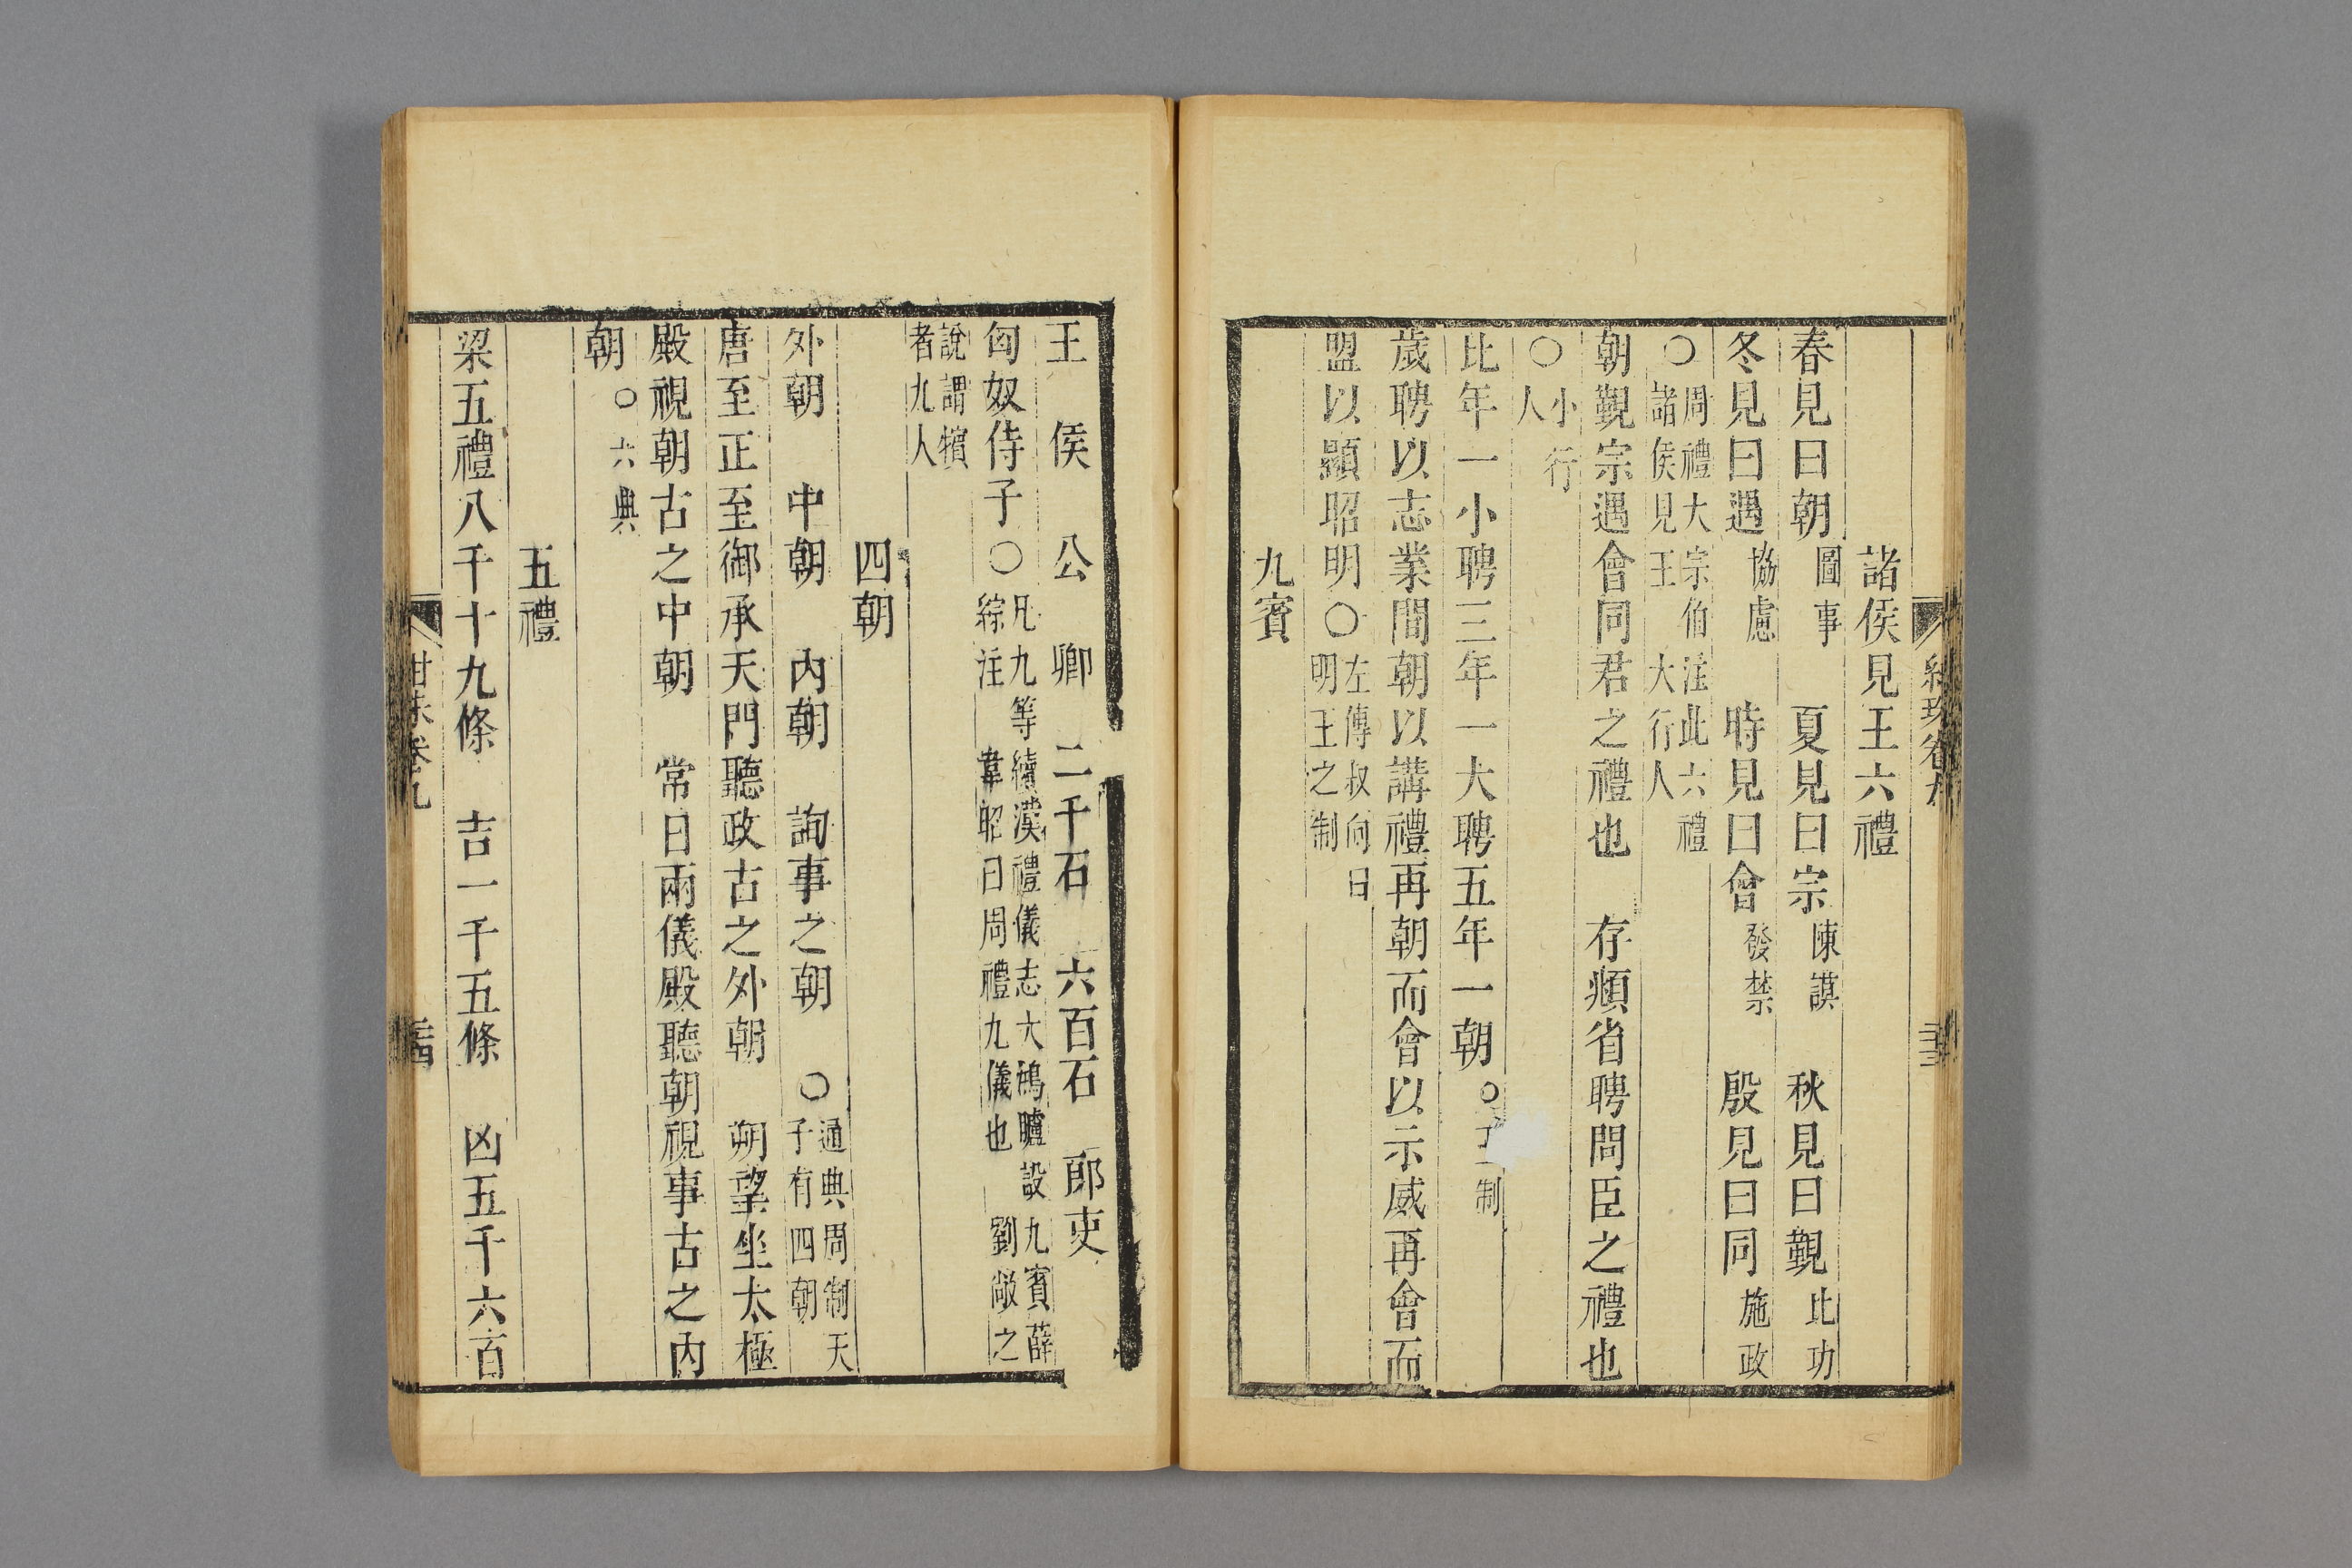 諸侯見王六禮
春見曰朝圖事　夏見曰宗陳謨　秋見曰覲比功
冬見曰遇協慮　時見曰會發禁　殷見曰同施政
○周禮大宗伯注此六禮諸侯見王大行人
朝覲宗遇會同君之禮也　存頫省聘問臣之禮也
○小行人
比年一小聘三年一大聘五年一朝○制
歲聘以志業間朝以講禮再朝而會以示威再會而
盟以顯昭明○左傳叔向曰明王之制
九賓
王　侯　公　卿　二千石　六百石　郎吏
匈奴侍子○凡九等續漢禮儀志大鴻臚設九賓薛綜注韋昭曰周禮九儀也劉敞之
說謂擯者九人
四朝
外朝　中朝　內朝　詢事之朝　○通典周制天子有四朝
唐至正至御承天門聽政古之外朝　朔望坐太極
殿視朝古之中朝　常日兩儀殿聽朝視事古之內
朝○六典
五禮
梁五禮八千十九條　吉一千五條　凶五千六百